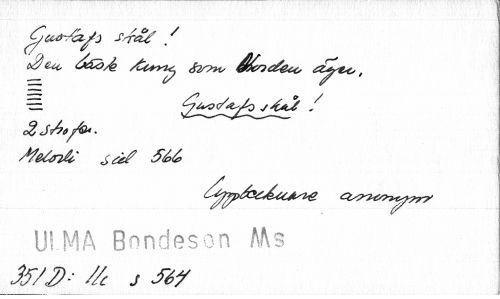 Gustafs skål!
Den bäste kung som Norden äger.
Gustafs skål!
2 strofer.
Melodi sid 566
Upptecknare anonym
ULMA Bondeson Ms
351 D: 11c s 564